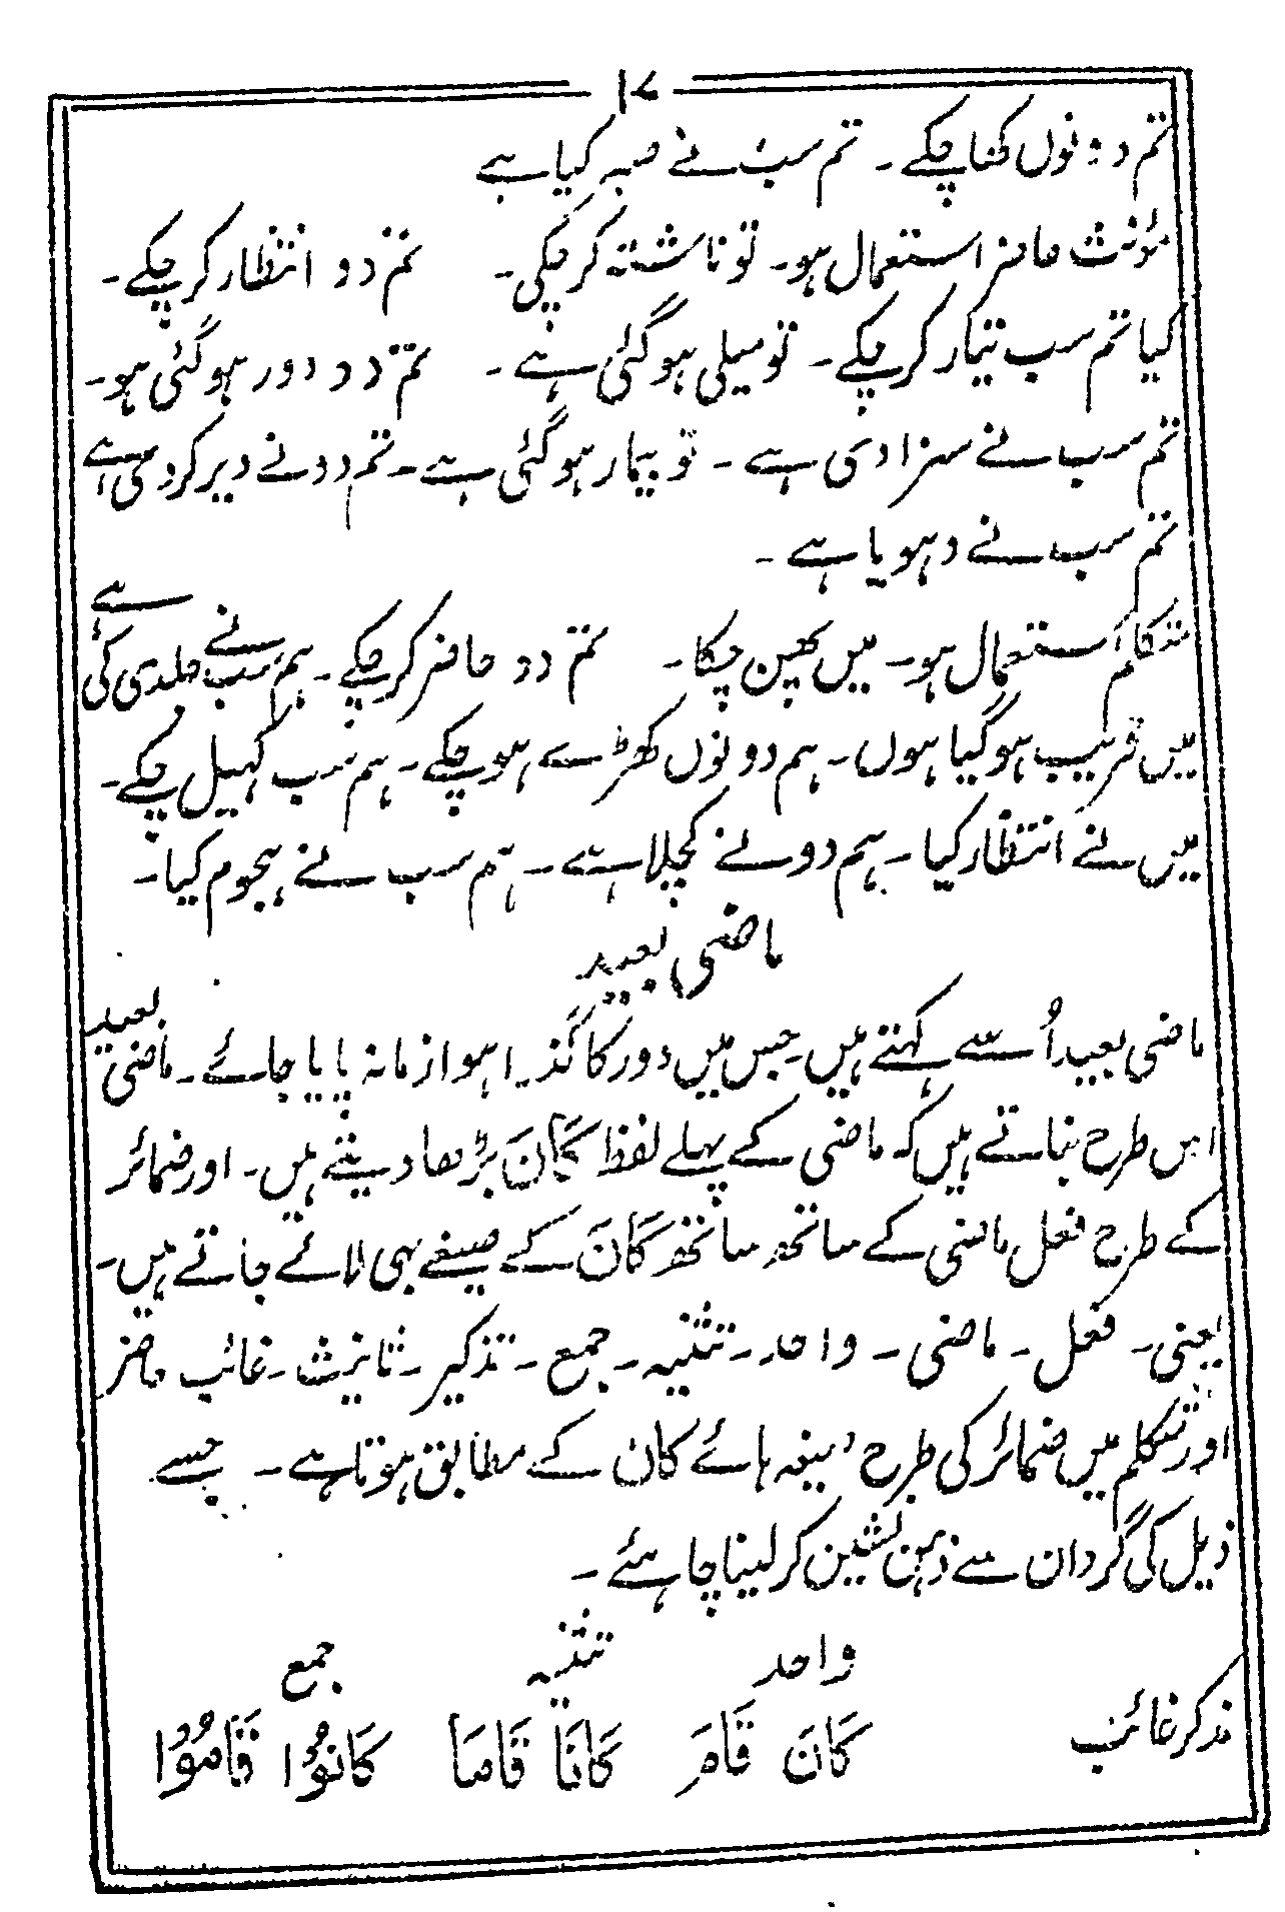 ۱۷
تم دونوں کھنا چکے ۔ تم سب نے صبر کیا ہے
مؤنث حاضر استعمال ہو۔ تو ناشتہ کر چکی ۔ تم دو انتظار کر چکے ۔
کیا تم سب تیار کر چکے ۔ تو میلی ہو گئی ہے ۔ تم دو دور ہو گئی ہو ۔
تم سب نے سزا دی ہے ۔ تو بیمار ہو گئی ہے ۔ تم دو نے دیر کر دی ہے
تم سب نے دہویا ہے ۔
متکلم استعمال ہو ۔ میں چھین چکا ۔ تم دو حاضر کر چکے ۔ ہم سب نے جلدی کی ہے
میں قریب ہو گیا ہوں ۔ ہم دونوں کھڑے ہو چکے ۔ ہم سب کہیل چکے ۔
میں نے انتظار کیا ۔ ہم دو نے کچلا ہے ۔ ہم سب نے ہجوم کیا ۔
ماضی بعید
ماضی بعید اُسے کہتے ہیں جس میں دور کا گذرا ہوا زمانہ پایا جائے ۔ ماضی بعید
اس طرح بناتے ہیں کہ ماضی کے پہلے لفظ کَانَ بڑھا دیتے ہیں ۔ اور ضمائر
کے طرح فعل ماضی کے ساتھ ساتھ کَانَ کے صیغے بہی لائے جاتے ہیں ۔
یعنی ۔ فعل ۔ ماضی ۔ واحد ۔ تثنیہ ۔ جمع ۔ تذکیر ۔ تانیث ۔ غائب حاضر
اور متکلم میں ضمائر کی طرح صیغہ ہائے کان کے مطابق ہوتا ہے ۔ جسے
ذیل کی گردان سے ذہن نشین کر لینا چاہئے ۔
واحد تثنیہ جمع
مذکر غائب کَانَ قَامَ کَانَا قَامَا کَانُوْا قَامُوْا